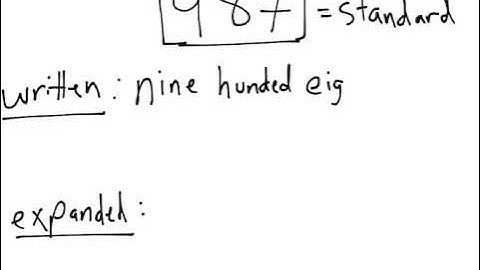 987 = Standard
written: nine hunded eig
expanded: